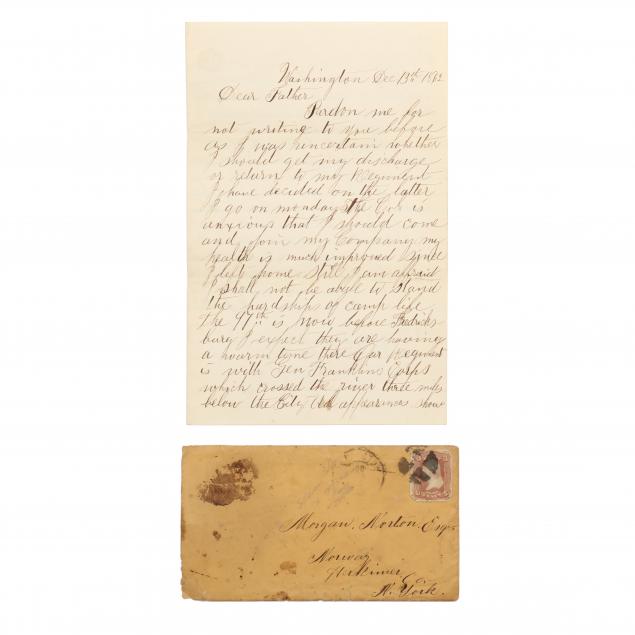 Washington Dec 13th 1862
Dear Father
Pardon me for
not writing to you before
as I was uncertain whether
I should get my discharge
or return to my Regiment
I have decided on the latter
I go on monday the Col is
anxious that I should come
and join my Company my
health is much improved since
I left home still I am afraid
I shall not be able to stand
the hardships of camp life
The 97th is now before Fredricks
burg I expect they are having
a warm time there Our Regiment
is with Gen Franklins Corps
which crossed the river three miles
below the City appearances show
Morgan. Norton. Esqr
Norway
Herkimer Co
N. York.